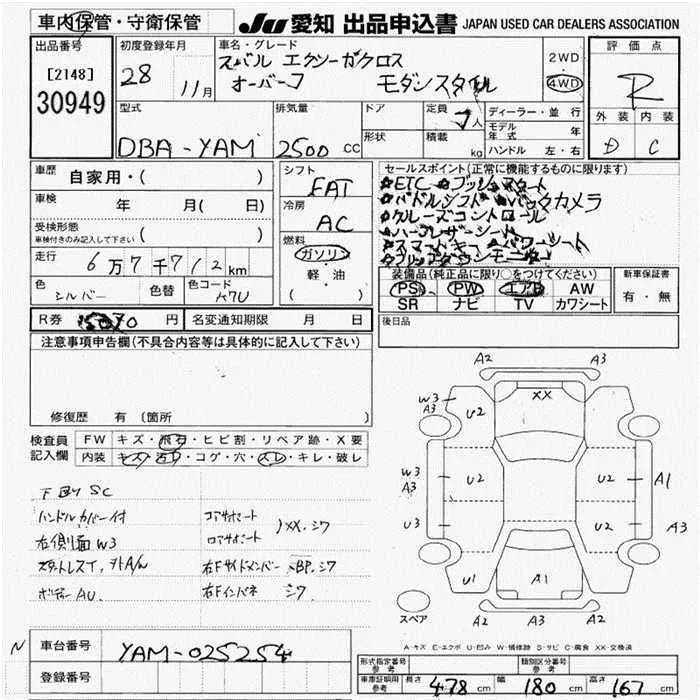 車内保管・守衛保管 JU 愛知 出品申込書 JAPAN USED CAR DEALERS ASSOCIATION
出品番号
[2148]
30949
初度登録年月
28 11月
車名・グレード
スバル エクシーガクロス
オーバー7 モダンスタイル
2WD
4WD
評価点
R
外装 内装
D C
型式
DBA-YAM
排気量
2500 CC
ドア
形状
定員 7人
積載 kg
ディーラー・並行
モデル年式 年
ハンドル 左・右
車歴 自家用・( )
車検 年 月( 日)
受検形態
車検付きのみ記入して下さい ( )
走行 6万7千712km
色 シルバー 色替 色コード
R券 円 名変通知期限 月 日
シフト
FAT
冷房
AC
燃料
ガソリン
軽・油
( )
セールスポイント(正常に機能するものに限ります)
★ETC ★プッシュスタート
★パドルシフト ★バックカメラ
★クルーズコントロール
★ハーフレザーシート
★スマートキー ★パワーシート
装備品(純正品に限り○をつけてください)
PS PW エアB AW
SR ナビ TV カワシート
新車保証書
有・無
後日品
注意事項申告欄(不具合内容等は具体的に記入して下さい)
修復歴 有 (箇所 )
検査員記入欄
FW キズ・飛石・ヒビ割・リペア跡・X要
内装 キズ・汚れ・コゲ・穴・スレ・キレ・破レ
下廻りSC
ハンドルカバー付
右側面W3
スタットレスT、外A/W
ボデーAU
コアサポート
ロアサポート
)XX、シワ
右Fサイドメンバー BP、シワ
右Fインパネ シワ
A2 A3
XX
W3
A3
U2 U2
W3
A3
U2 U2 A1
U3 U2 A3
U1 A1
スペア
A2 A3 A2
A-キズ E-エクボ U-凹み W-補修跡 S-サビ C-腐食 XX-交換済
N 車台番号 YAM-025254
登録番号
形式指定番号
参考
類別区分番号
参考
車庫証明用
参考
長さ 478 cm 幅 180 cm 高さ 167 cm